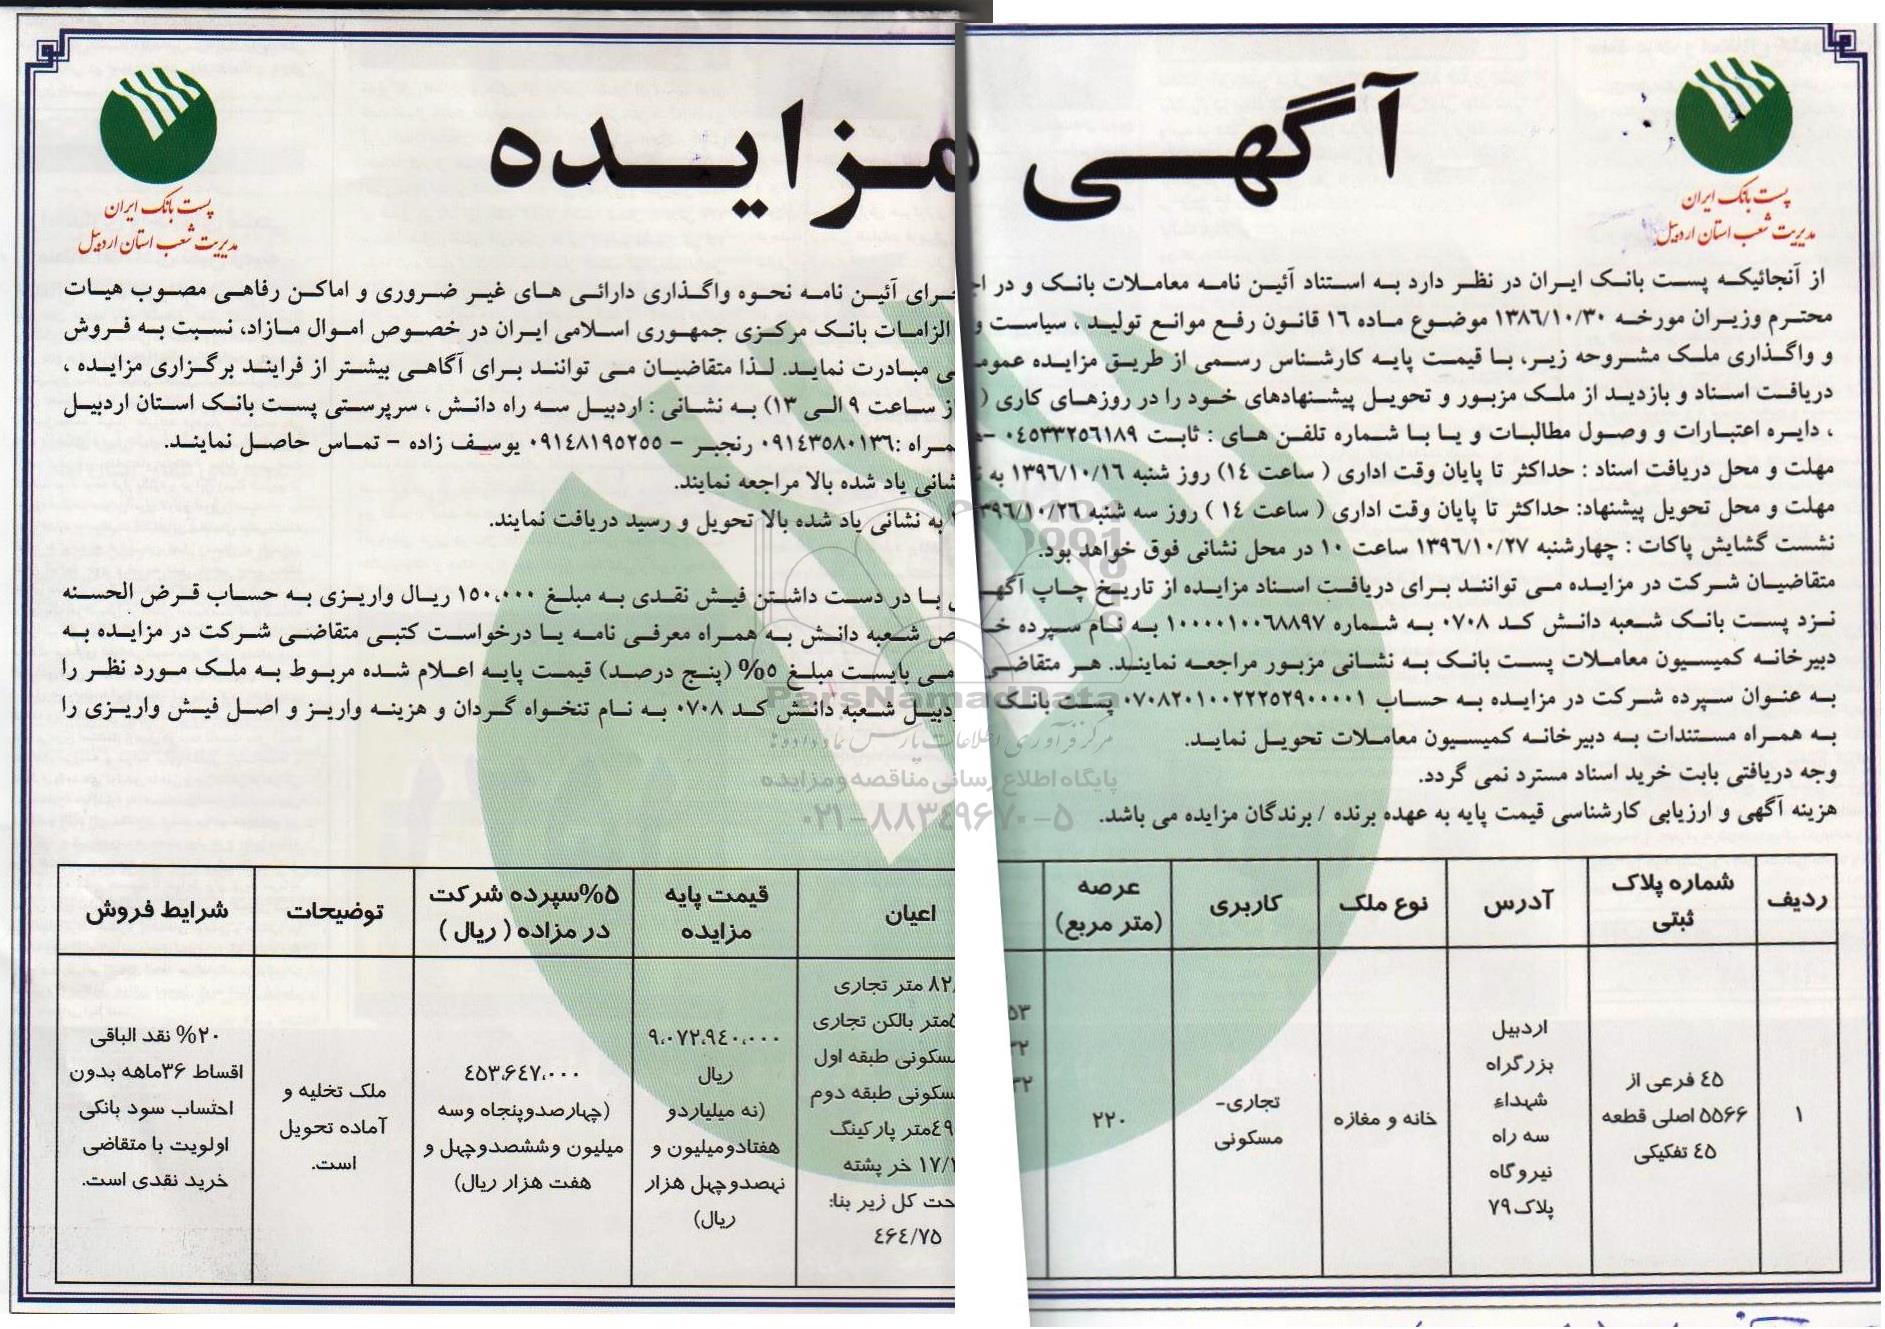 آگهی مزایده
پست بانک ایران
مدیریت شعب استان اردبیل
پست بانک ایران
مدیریت شعب استان اردبیل
از آنجائیکه پست بانک ایران در نظر دارد به استناد آئین نامه معاملات بانک و در اجرای آئین نامه نحوه واگذاری دارائی های غیر ضروری و اماکن رفاهی مصوب هیات
محترم وزیران مورخه ۱۳۸۶/۱۰/۳۰ موضوع ماده ۱۶ قانون رفع موانع تولید ، سیاست و الزامات بانک مرکزی جمهوری اسلامی ایران در خصوص اموال مازاد، نسبت به فروش
و واگذاری ملک مشروحه زیر، با قیمت پایه کارشناس رسمی از طریق مزایده عمومی مبادرت نماید. لذا متقاضیان می توانند برای آگاهی بیشتر از فرایند برگزاری مزایده ،
دریافت اسناد و بازدید از ملک مزبور و تحویل پیشنهادهای خود را در روزهای کاری ( از ساعت ۹ الی ۱۳) به نشانی : اردبیل سه راه دانش ، سرپرستی پست بانک استان اردبیل
، دایره اعتبارات و وصول مطالبات و یا با شماره تلفن های : ثابت ۰۴۵۳۳۲۵۶۱۸۹ -همراه :۰۹۱۴۳۵۸۰۱۳۶ رنجبر - ۰۹۱۴۸۱۹۵۲۵۵ یوسف زاده - تماس حاصل نمایند.
مهلت و محل دریافت اسناد : حداکثر تا پایان وقت اداری ( ساعت ۱۴) روز شنبه ۱۳۹۶/۱۰/۱۶ به نشانی یاد شده بالا مراجعه نمایند.
مهلت و محل تحویل پیشنهاد: حداکثر تا پایان وقت اداری ( ساعت ۱۴ ) روز سه شنبه ۱۳۹۶/۱۰/۲۶ به نشانی یاد شده بالا تحویل و رسید دریافت نمایند.
نشست گشایش پاکات : چهارشنبه ۱۳۹۶/۱۰/۲۷ ساعت ۱۰ در محل نشانی فوق خواهد بود.
متقاضیان شرکت در مزایده می توانند برای دریافت اسناد مزایده از تاریخ چاپ آگهی با در دست داشتن فیش نقدی به مبلغ ۱۵۰،۰۰۰ ریال واریزی به حساب قرض الحسنه
نزد پست بانک شعبه دانش کد ۰۷۰۸ به شماره ۱۰۰۰۰۱۰۰۶۸۸۹۷ به نام سپرده خاص شعبه دانش به همراه معرفی نامه یا درخواست کتبی متقاضی شرکت در مزایده به
دبیرخانه کمیسیون معاملات پست بانک به نشانی مزبور مراجعه نمایند. هر متقاضی می بایست مبلغ ۵% (پنج درصد) قیمت پایه اعلام شده مربوط به ملک مورد نظر را
به عنوان سپرده شرکت در مزایده به حساب ۰۷۰۸۲۰۱۰۰۲۲۲۵۲۹۰۰۰۰۱ پست بانک اردبیل شعبه دانش کد ۰۷۰۸ به نام تنخواه گردان و هزینه واریز و اصل فیش واریزی را
به همراه مستندات به دبیرخانه کمیسیون معاملات تحویل نماید.
وجه دریافتی بابت خرید اسناد مسترد نمی گردد.
هزینه آگهی و ارزیابی کارشناسی قیمت پایه به عهده برنده / برندگان مزایده می باشد.
ParsNamadData
مرکز فرآوری اطلاعات پارس نماد داده ها
پایگاه اطلاع رسانی مناقصه و مزایده
۰۲۱-۸۸۳۴۹۶۷۰-۵
ردیف
شماره پلاک
ثبتی
آدرس
نوع ملک
کاربری
عرصه
(متر مربع)
اعیان
قیمت پایه
مزایده
۵%سپرده شرکت
در مزاده ( ریال )
توضیحات
شرایط فروش
۱
۴۵ فرعی از
۵۵۶۶ اصلی قطعه
۴۵ تفکیکی
اردبیل
بزرگراه
شهداء
سه راه
نیروگاه
پلاک۷۹
خانه و مغازه
تجاری-
مسکونی
۲۲۰
متر تجاری
متر بالکن تجاری
مسکونی طبقه اول
مسکونی طبقه دوم
متر پارکینگ
خر پشته
کل زیر بنا:
۴۶۴/۷۵
۹،۰۷۲،۹۴۰،۰۰۰
ریال
(نه میلیاردو
هفتادومیلیون و
نهصدوچهل هزار
ریال)
۴۵۳،۶۴۷،۰۰۰
(چهارصدوپنجاه وسه
میلیون وششصدوچهل و
هفت هزار ریال)
ملک تخلیه و
آماده تحویل
است.
۲۰% نقد الباقی
اقساط ۳۶ماهه بدون
احتساب سود بانکی
اولویت با متقاضی
خرید نقدی است.